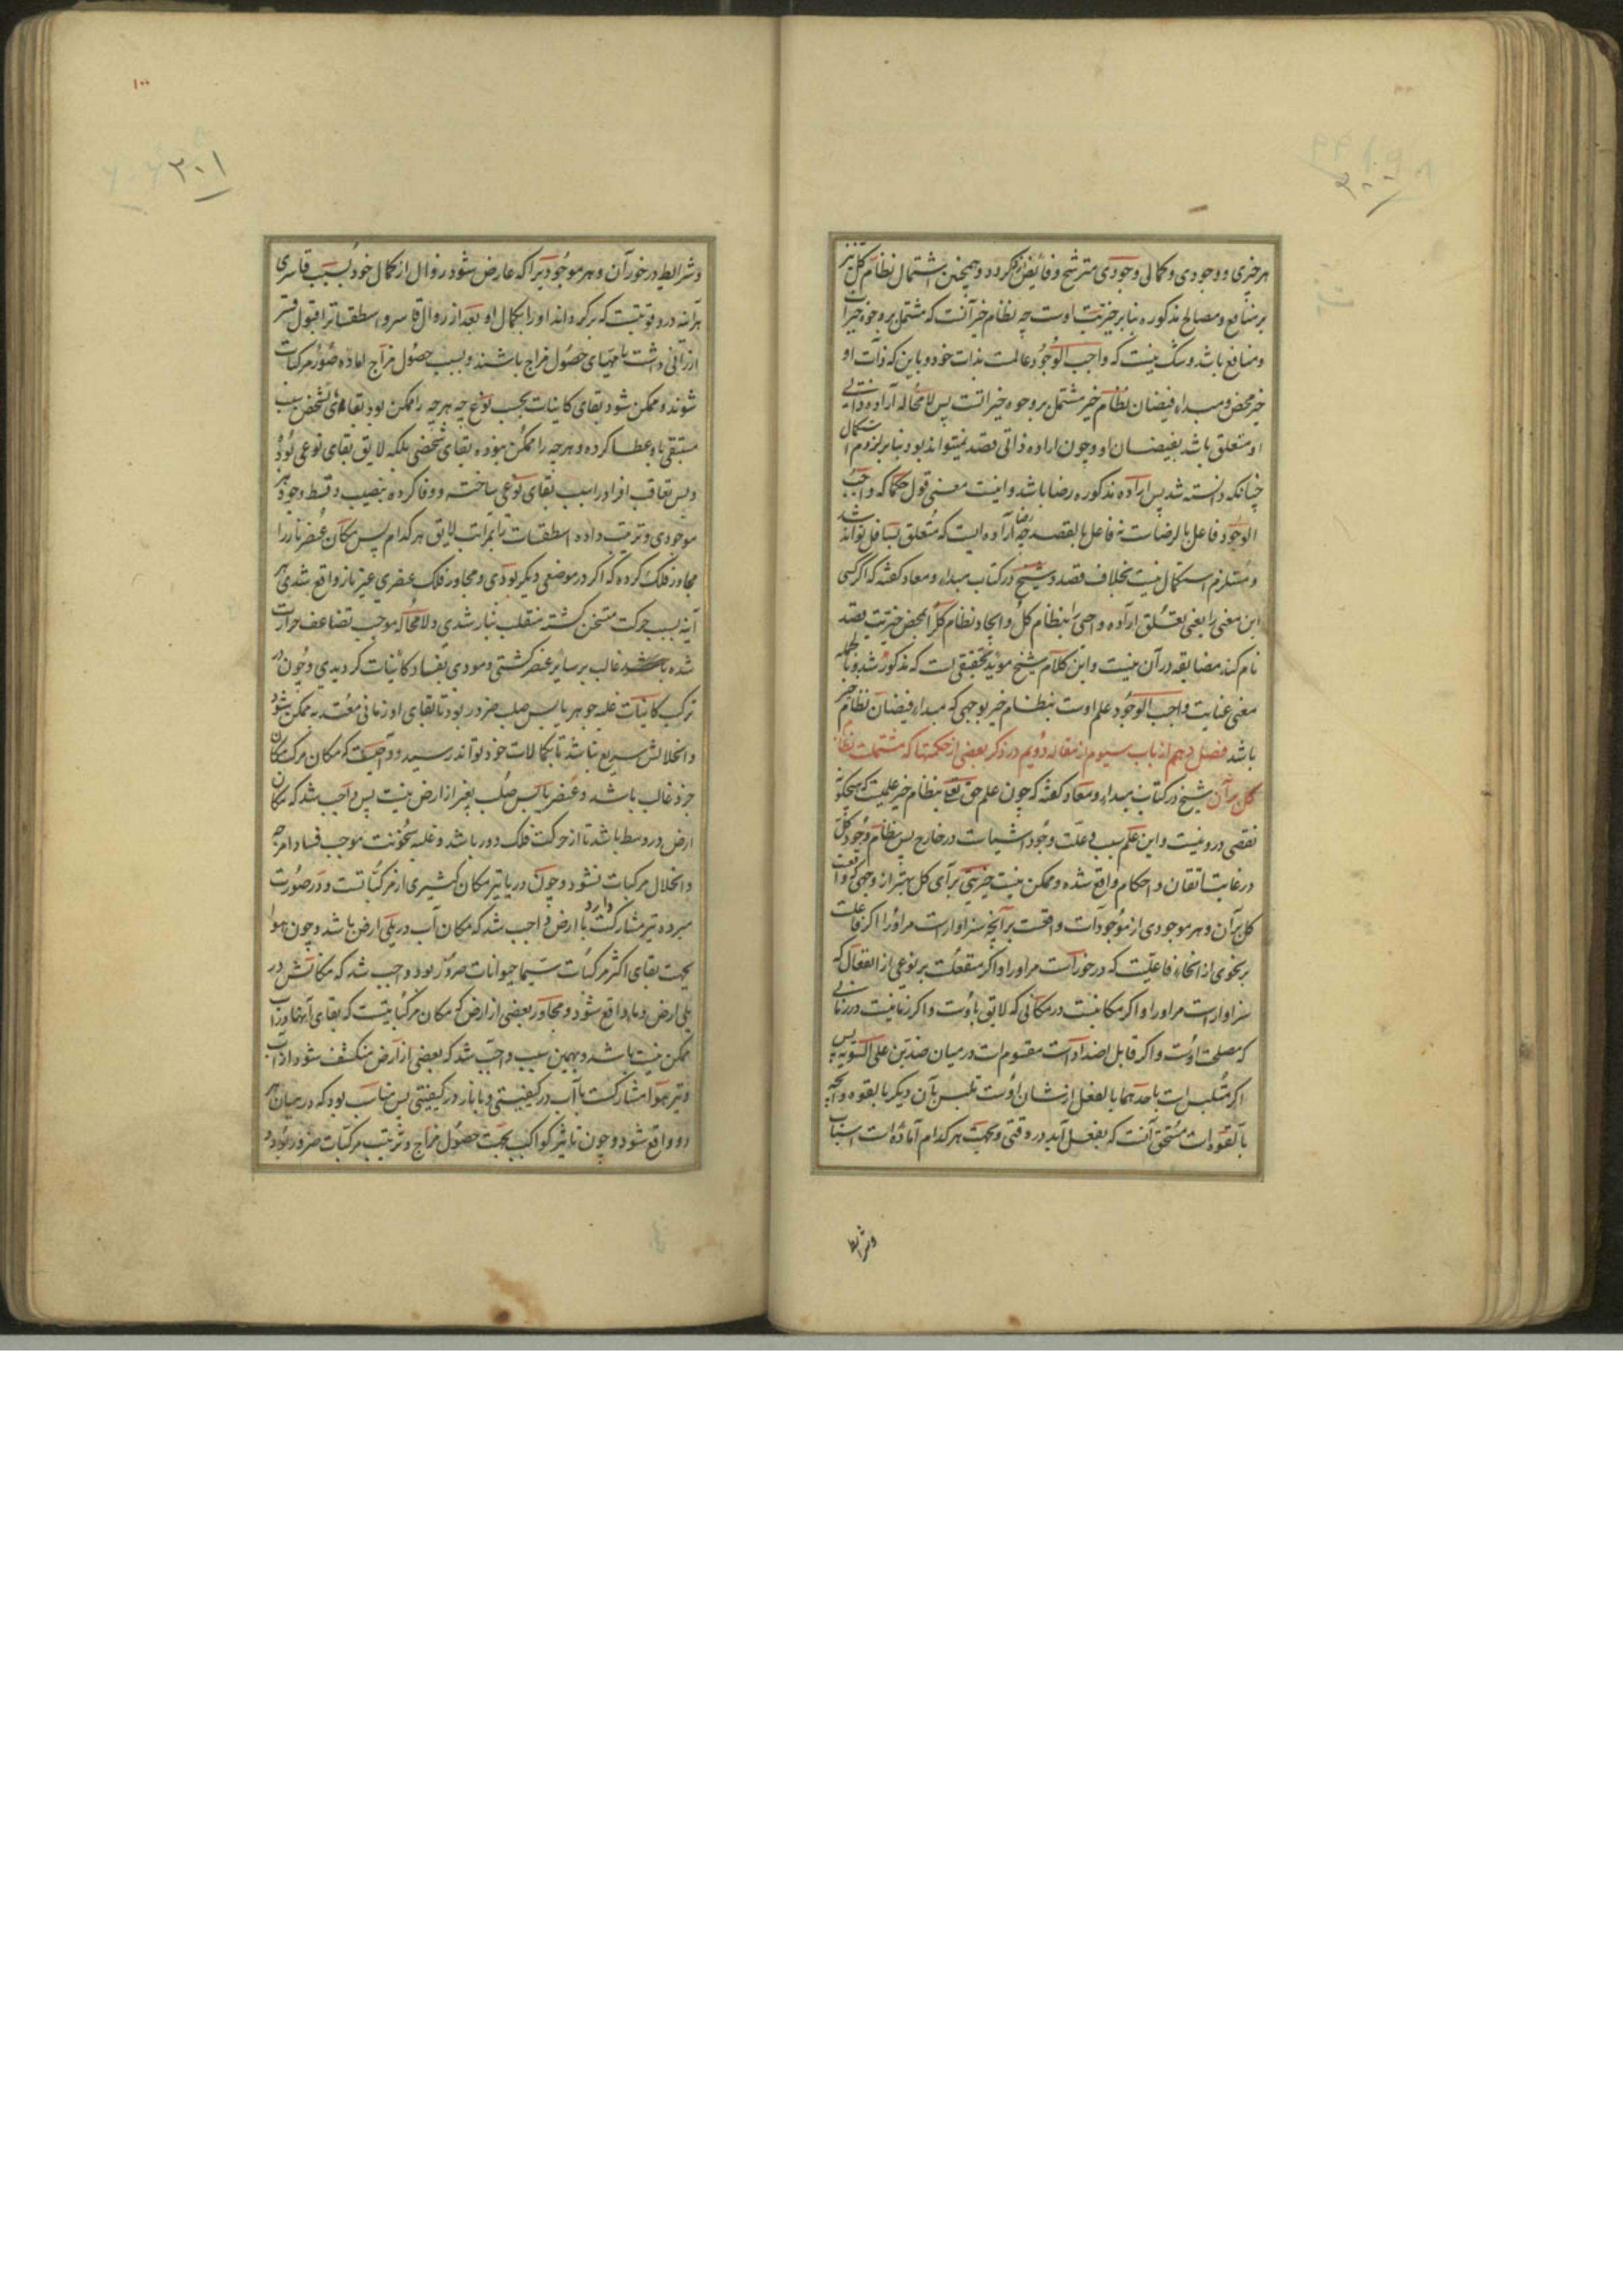 هر خیری و وجودی و کمالی وجودی مترشح و فائض نکردد و همچنین اشتمال نظام کل نیز
بر منافع و مصالح مذکوره بنا بر خیریت اوست چه نظام خیر آنست که مشتمل بر وجوه خیرات
و منافع باشد و شک نیست که واجب الوجود عالمست بذات خود و باین که ذات او
خیر محض و مبداء فیضان نظام خیر مشتمل بر وجوه خیراتست پس لا محاله اراده ذاتی
او متعلق باشد بفیضان او و چون اراده ذاتی قصد نمیتواند بود بنا بر لزوم استکمال
چنانکه دانسته شد پس اراده مذکوره رضا باشد و اینست معنی قول حکما که واجب
الوجود فاعل بالرضاست نه فاعل بالقصد چه رضا اراده ایست که متعلق بسافل تواند شد
و مستلزم استکمال نیست بخلاف قصد و شیخ در کتاب مبداء و معاد کفته که اکر کسی
این معنی را یعنی تعلق اراده واجبی را بنظام کل و ایجاد نظام کل را بمحض خیریت قصد
نام کند مضایقه در آن نیست و این کلام شیخ مؤید تحقیقی است که مذکور شد و بالجمله
معنی عنایت واجب الوجود علم اوست بنظام خیر بوجهی که مبداء فیضان نظام خیر
باشد فصل دهم از باب سیوم از مقاله دویم در ذکر بعضی از حکمتها که مشتملست نظام
کل بر آن شیخ در کتاب مبداء و معاد کفته که چون علم حق تعالی بنظام خیر علمیست که هیچکونه
نقصی درو نیست و این علم سبب و علت وجود اشیاست در خارج پس نظام وجود کل
در غایت اتقان و احکام واقع شده و ممکن نیست خیریتی برای کل بهتر از وجهی که واقعست
کل بر آن و هر موجودی از موجودات واقعست بر آنچه سزاوار است مر او را اکر فاعلست
بر نحوی از انحاء فاعلیت که در خور است مر او را و اکر منفعلست بر نوعی از انفعال که
سزاوار است مر او را و اکر مکانیست در مکانی که لایق باوست و اکر زمانیست در زمانی
که مصلحت اوست و اکر قابل اضداد است مقسوم است در میان ضدین علی السویه پس
اکر متلبس است باحدهما بالفعل از شان اوست تلبس بآن دیکر بالقوه و آنچه
بالقوه است مستحق آنست که بفعل آید در وقتی و بجهت هر کدام آماده است اسباب
وشرایط
وشرایط در خور آن و هر موجودیرا که عارض شود زوال از کمال خود بسبب قاسری
هرآینه درو قوتیست که برکرداند او را بکمال او بعد از زوال قاسر و اسطقساترا قبول قسر
ارزانی داشت تا مهیای حصول مزاج باشند و بسبب حصول مزاج اماده صور مرکبات
شوند و ممکن شود بقای کاینات بحسب نوع چه هر چه را ممکن بود بقاء شخص سبب
مستبقی باو عطا کرده و هر چه را ممکن نبوده بقای شخصی بلکه لایق بقای نوعی بود
و پس تعاقب افراد را سبب بقای نوعی ساخته و وفا کرده بنصیب و قسط وجود هر
موجودی و ترتیب داده اسطقسات را بمراتب لایق هر کدام پس مکان عنصر نار را
مجاور فلک کرده که اکر در موضعی دیکر بودی و مجاور فلک عنصری غیر نار واقع شدی هر
آینه بسبب حرکت متسخن کشته منقلب بنار شدی و لا محاله موجب تضاعف حرارت
شده غالب بر سائر عنصر کشتی و مودی بفساد کائنات کردیدی و چون در
ترکب کاینات غلبه جوهر یابس صلب ضرور بود تا بقای او زمانی معتد به ممکن شود
و انحلالش سریع نباشد تا بکمالات خود تواند رسید و واجبست که مکان مرکب مکان
جزو غالب باشد و عنصر یابس صلب بغیر از ارض نیست پس واجب شد که مکان
ارض در وسط باشد تا از حرکت فلک دور باشد و غلبه سخونت موجب فساد امزجه
و انحلال مرکبات نشود و چون دریا نیز مکان کثیری از مرکباتست و در صورت
مبرده نیز مشارکت دارد با ارض واجب شد که مکان آب در یلی ارض باشد و چون هوا
بجهت بقای اکثر مرکبات سیما حیوانات ضرور بود واجب شد که مکانش در
یلی ارض و ماء واقع شود و مجاور بعضی از ارض که مکان مرکباتیست که بقای آنها در آب
ممکن نیست باشد و بهمین سبب واجب شد که بعضی از ارض منکشف شود از آب
و نیز هوا مشارکست با آب در کیفیتی و با نار در کیفیتی پس مناسب بود که در میان هر
دو واقع شود و چون تاثیر کواکب بجهت حصول مزاج و ترتیب مرکبات ضرور بود و
۱۰۰
۲۰۱